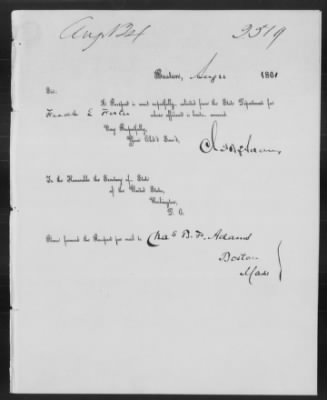 Aug 24 3519
Boston, Aug 22 1881
Sir:
A Passport is most respectfully solicited from the State Department for
Frank E. whose affidavit is hereto annexed.
Very Respectfully,
Your Obd't Serv't,
To the Honorable the Secretary of State
of the United States,
Washington,
D. C.
Please forward the Passport per mail to Chas B. F. Adams
Boston
Mass